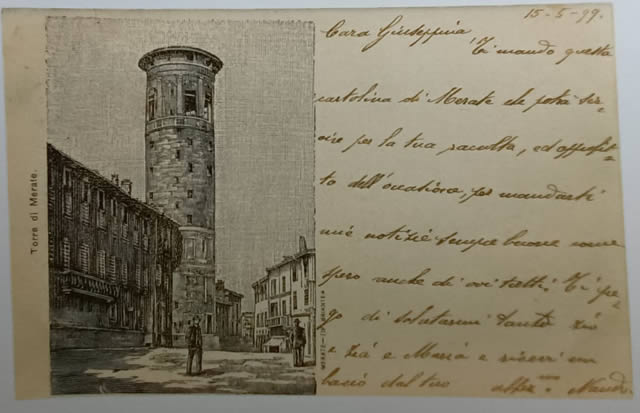 Torre di Merate.
15-5-99.
Cara Giuseppina
Ti mando questa
cartolina di Merate che potrà ser-
vire per la tua raccolta, ed approfit-
to dell'occasione, per mandarti
mie notizie sempre buone come
spero anche di voi tutti. Ti pre-
go di salutarmi tanto zio
e zia e Maria e ricevi un
bacio dal tuo affez.